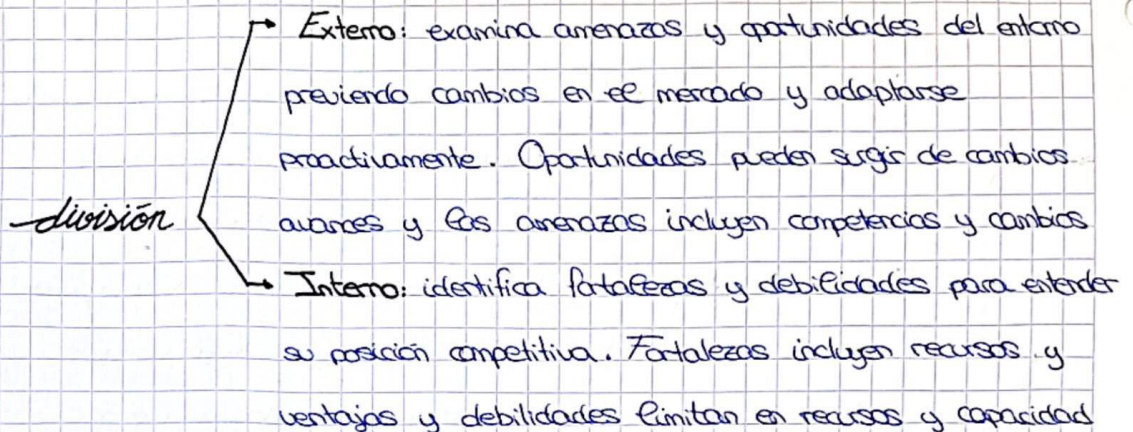 Externo: examina amenazas y oportunidades del entorno
previendo cambios en el mercado y adaptarse
proactivamente. Oportunidades pueden surgir de cambios
división
avances y las amenazas incluyen competencias y cambios
Interno: identifica fortalezas y debilidades para entender
su posición competitiva. Fortalezas incluyen recursos y
ventajas y debilidades limitan en recursos y capacidad